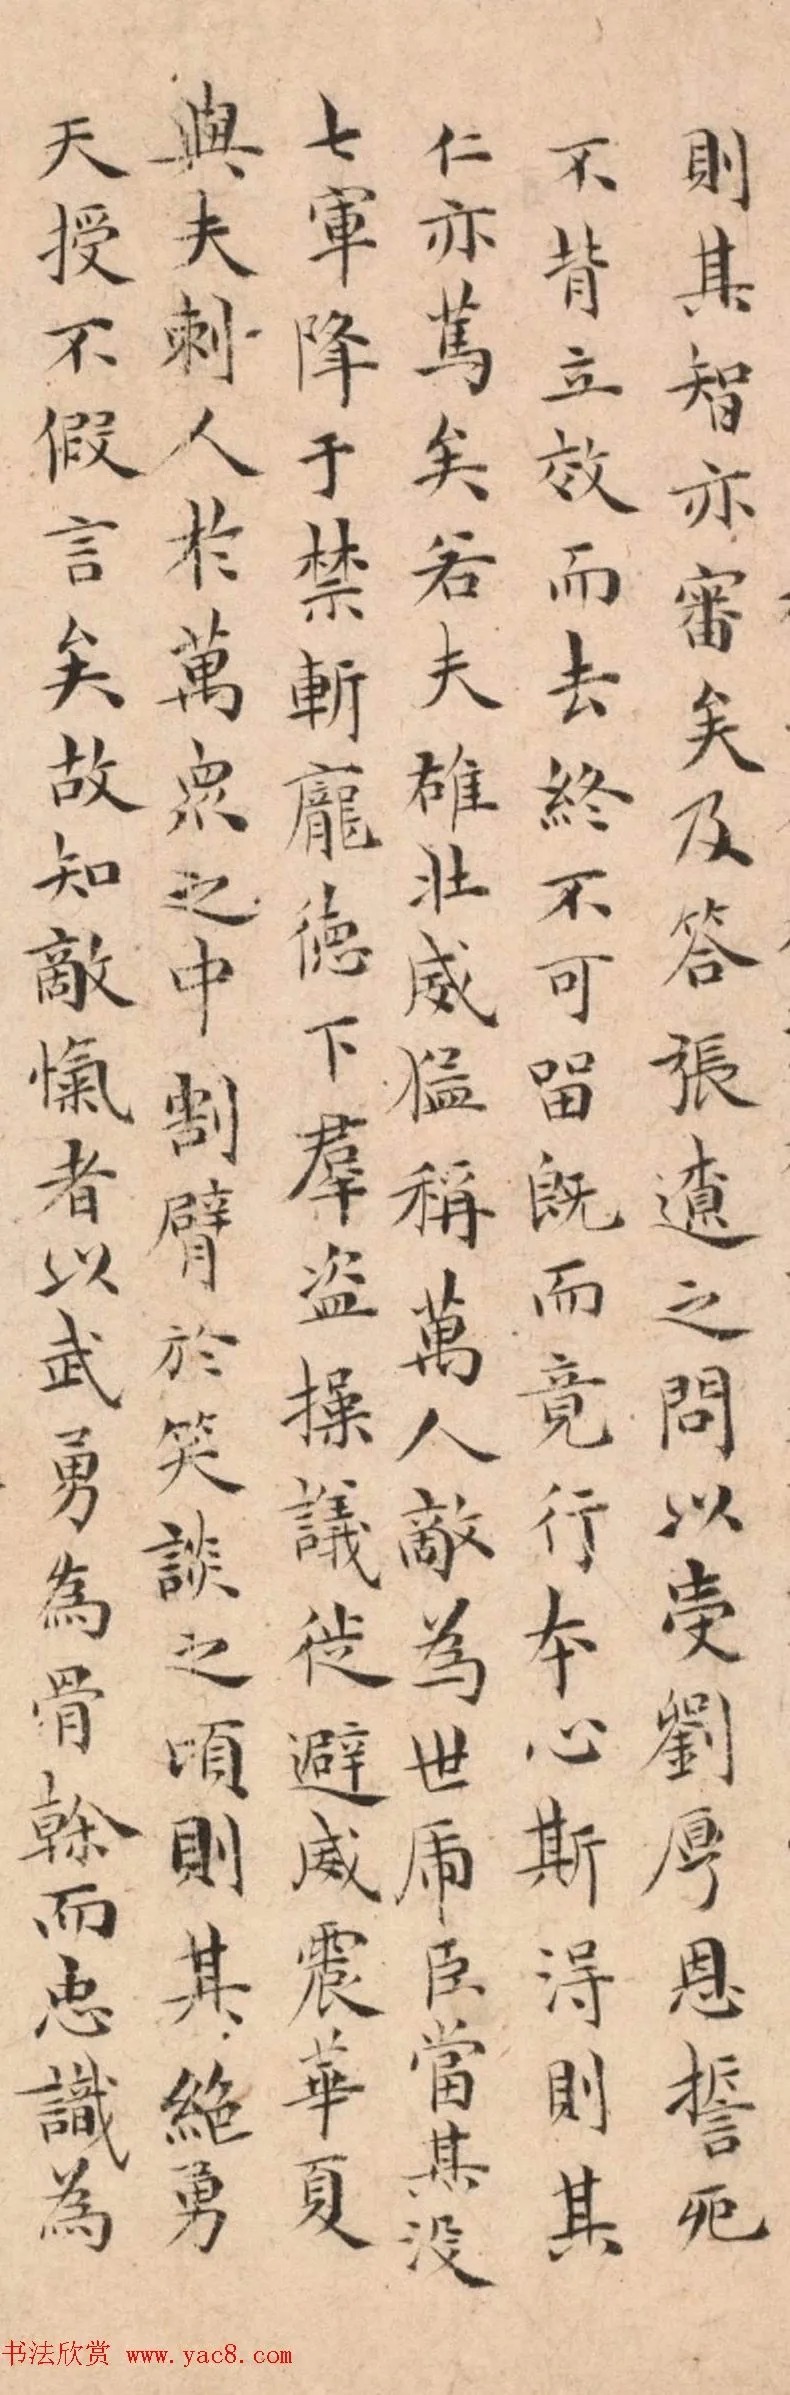 則其智亦審矣及答張遼之問以受劉厚恩誓死
不背立效而去終不可留既而竟行本心斯得則其
仁亦篤矣若夫雄壯威猛稱萬人敵為世虎臣當其没
七軍降于禁斬龐德下羣盜操議徙避威震華夏
與夫刺人於萬眾之中割臂於笑談之頃則其絶勇
天授不假言矣故知敵愾者以武勇為骨榦而忠識為
书法欣赏 www.yac8.com